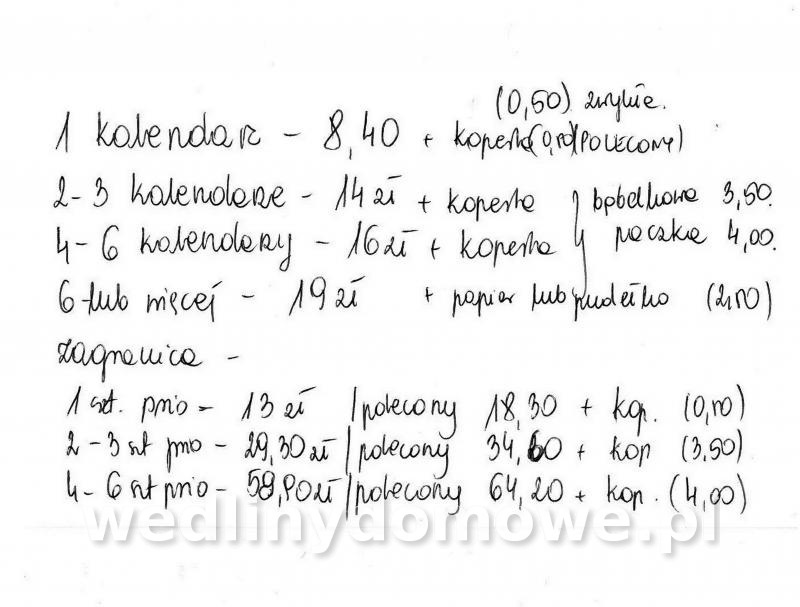 (0,50) zwykłe.
1 kalendarz - 8,40 + koperta (0,50) (POLECONY)
2-3 kalendarze - 14 zł + koperta } bąbelkowa 3,50.
4-6 kalendarzy - 16 zł + koperta } paczka 4,00.
6 lub więcej - 19 zł + papier lub pudełko (2,50)
zagranica -
1 szt. prio - 13 zł / polecony 18,30 + kop. (0,50)
2-3 szt prio - 29,30 zł / polecony 34,60 + kop (3,50)
4-6 szt prio - 58,90 zł / polecony 64,20 + kop. (4,00)
wedlinydomowe.pl